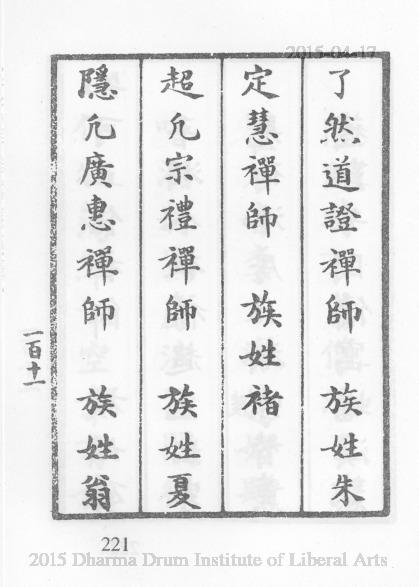 2015-04-17
了然道證禪師　族姓朱
定慧禪師　族姓褚
超凢宗禮禪師　族姓夏
隱凢廣惠禪師　族姓翁
一百十一
221
2015 Dharma Drum Institute of Liberal Arts